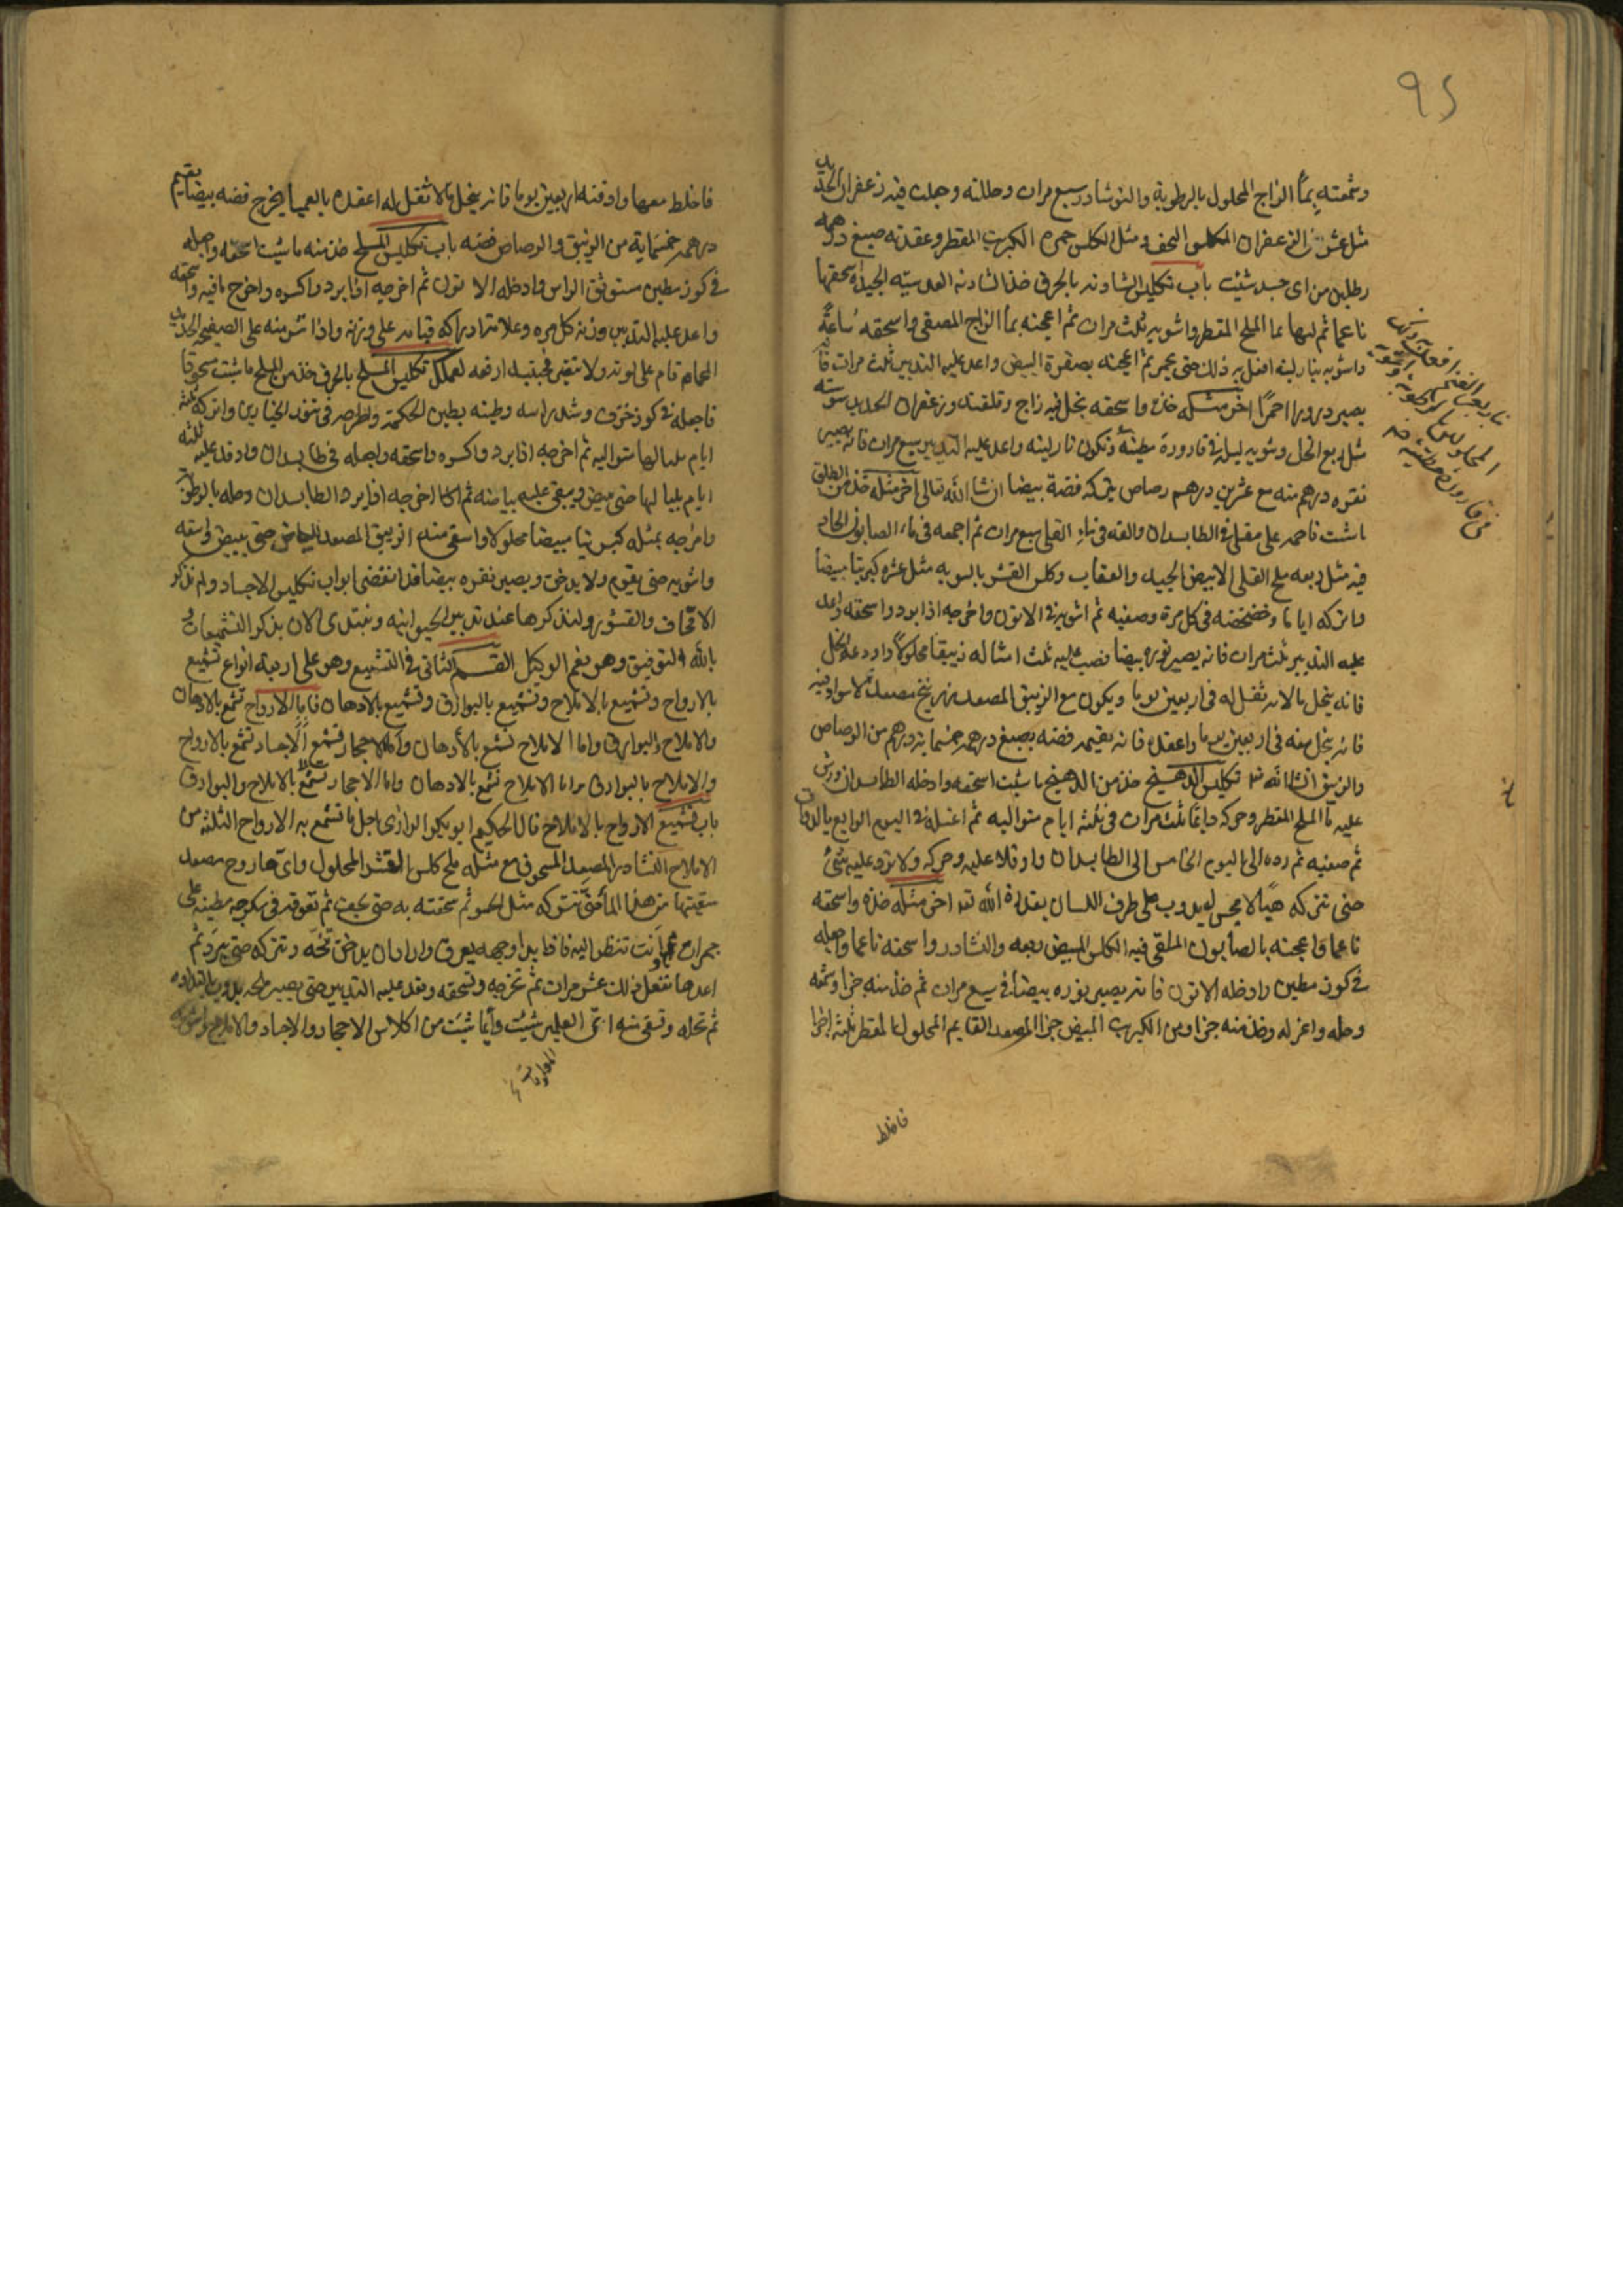 ٩٢
وشمعته بماء الزاج المحلول بالرطوبة والنوشادر سبع مرات وحللته وجعلت فيه زعفران الحديد
مثل عشر الزعفران المكلس ومثل الكلس حمرة الكبريت المقطر وعقدته صبغ درهمه
رطلين من اى جسد شئت باب تكليس الشادنه بالحرق خذ الشادنه العدسيه الجيده اسحقها
ناعما ثم لتها بما الملح المقطر واشويه ثلث مرات ثم اعجنه بما الزاج المصفى واسحقه ساعة
واشويه بنار لينه افعل به ذلك حتى يحمر ثم اعجنه بصفرة البيض واعد عليه التدبير ثلث مرات فانه
يصير ذرورا احمرا اخر مثله خذه واسحقه بخل فيه زاج وقلقند وزعفران الحديد سويه
مثل ربع الخل وشويه ليله فى قارورة مطينه وتكون نار لينه واعد عليه التدبير سبع مرات فانه يصير
نقره درهم منه مع عشرين درهم رصاص يتركه فضة بيضا ان شا الله تعالى اخر مثله خذ من الطلق
ما شئت فاحمه على مقلى فى الطابسدان والقه فى ماء القلى سبع مرات ثم اجمعه فى ماء الصابون الحاد
فيه مثل ربعه ملح القلى الابيض الجيد والعقاب وكلس القشر بالسويه مثل عشره كبريتا مبيضا
واتركه اياما وخضخضه فى كل مرة وصفيه ثم اشويه فى الاتون واخرجه اذا برد واسحقه واعد
عليه التدبير ثلث مرات فانه يصير نوره بيضا فصب عليه ثلث امثاله زيبقا محلولا واودعه الحل
فانه ينحل بالانر ثقل له فى اربعين يوما ويكون مع الزيبق المصعد زرنيخ مصعد لا سواد فيه
فانه ينحل منه فى اربعين يوما واعقده فانه يقيم فضه يصبغ درهمه خمسمايه درهم من الرصاص
والزيبق ان شا الله تع تكليس الدهنج خذ من الدهنج ما شئت اسحقه وادخله الطابسدان ورش
عليه ما الملح المقطر وحركه دايما ثلث مرات فى ثلثه ايام متواليه ثم اغسله فى اليوم الرابع
ثم صفيه ثم رده الى اليوم الخامس الى الطابسدان واوقد عليه وحركه ولا تزد عليه شئ
حتى تتركه هبا لا مجس له يذوب على طرف اللسان بقدرة الله تع اخر مثله خذه واسحقه
ناعما واعجنه بالصابون الملقى فيه الكلس المبيض ربعه والنشادر واسحقه ناعما واجعله
فى كوز مطين وادخله الاتون فانه يصير نوره بيضا فى سبع مرات ثم خذ منه جزا وشمعه
وحله واعزله وخذ منه جزا ومن الكبريت المبيض جزا المصعد القايم المحلول المقطر ثلثه اجزا
فاخلط
فاخلط معها وادفنه اربعين يوما فانه ينحل بالا ثقل له اعقده بالعميا يخرج فضه بيضا يقيم
درهمه خمسماية من الزيبق والرصاص فضه باب تكليس الملح خذ منه ما شئت اسحقه واجعله
فى كوز مطين مستوثق الراس وادخله الاتون ثم اخرجه اذا برد واكسره واخرج ما فيه واسحقه
واعد عليه التدبير وزنه كل مره وعلامة ادراكه قيامه على وزنه واذا نثر منه على الصفيح الحديد
المحماه قام على لونه ولا يتغير ارفعه لعملك تكليس الملح بالحرق خذ من الملح ما شئت مسحوقا
فاجعله فى كوز خزف وشد راسه وطينه بطين الحكمه واطرحه فى تنور الخبازين واتركه ثلثه
ايام بلياليها متواليه ثم اخرجه اذا برد واكسره واسحقه واجعله فى طابسدان واوقد عليه ثلثه
ايام بلياليها حتى يبيض ويبقى عليه بياضه ثم اخرجه اذا برد الطابسدان وحله بالرطوبة
وامزجه بمثله كبريتا مبيضا محلولا واسقى منه الزيبق المصعد حتى يبيض واسقه
واشويه حتى يقوم ولا يدخن ويصير نقره بيضا قد انقضى ابواب تكليس الاجساد ولم نذكر
الاقحاف والقشور ولنذكرها عند تدبير الحيوانيه ونبتدى الان بذكر التشميعات
بالله التوفيق وهو نعم الوكيل القسم الثانى فى التشميع وهو على اربعة انواع تشميع
بالارواح وتشميع بالاملاح وتشميع بالبوارق وتشميع بالادهان فاما الارواح تشمع بالادهان
والاملاح والبوارق واما الاملاح تشمع بالأدهان واما الاحجار فتشمع الاجساد تشمع بالارواح
والاملاح بالبوارق واما الاملاح تشمع بالادهان واما الاحجار تشمع بالاملاح والبوارق
باب تشميع الارواح بالاملاح قال الحكيم ابو بكر الرازى اجل ما تشمع به الارواح الثلثه من
الاملاح النشادر المصعد المسحوق مع مثله ملح كلس القشر المحلول واى هذه روح مصعد
سقيتها من هذا الما حتى تتركه مثل الحسو ثم سحقته به حتى يجف ثم تعوقه فى سكرجه مطينه على
جمرات وانت تنظر اليه فاذا بدا وجهه يعرق واراد ان يدخن تنحه وتتركه حتى يبرد ثم
اعدها تفعل ذلك عشر مرات ثم تخرجه وتسحقه وتعد عليه التدبير حتى يصير
ثم تحله وتسقى منه اىّ العملين شئت وأيما شئت من اكلاس الاحجار والاجساد والاملاح